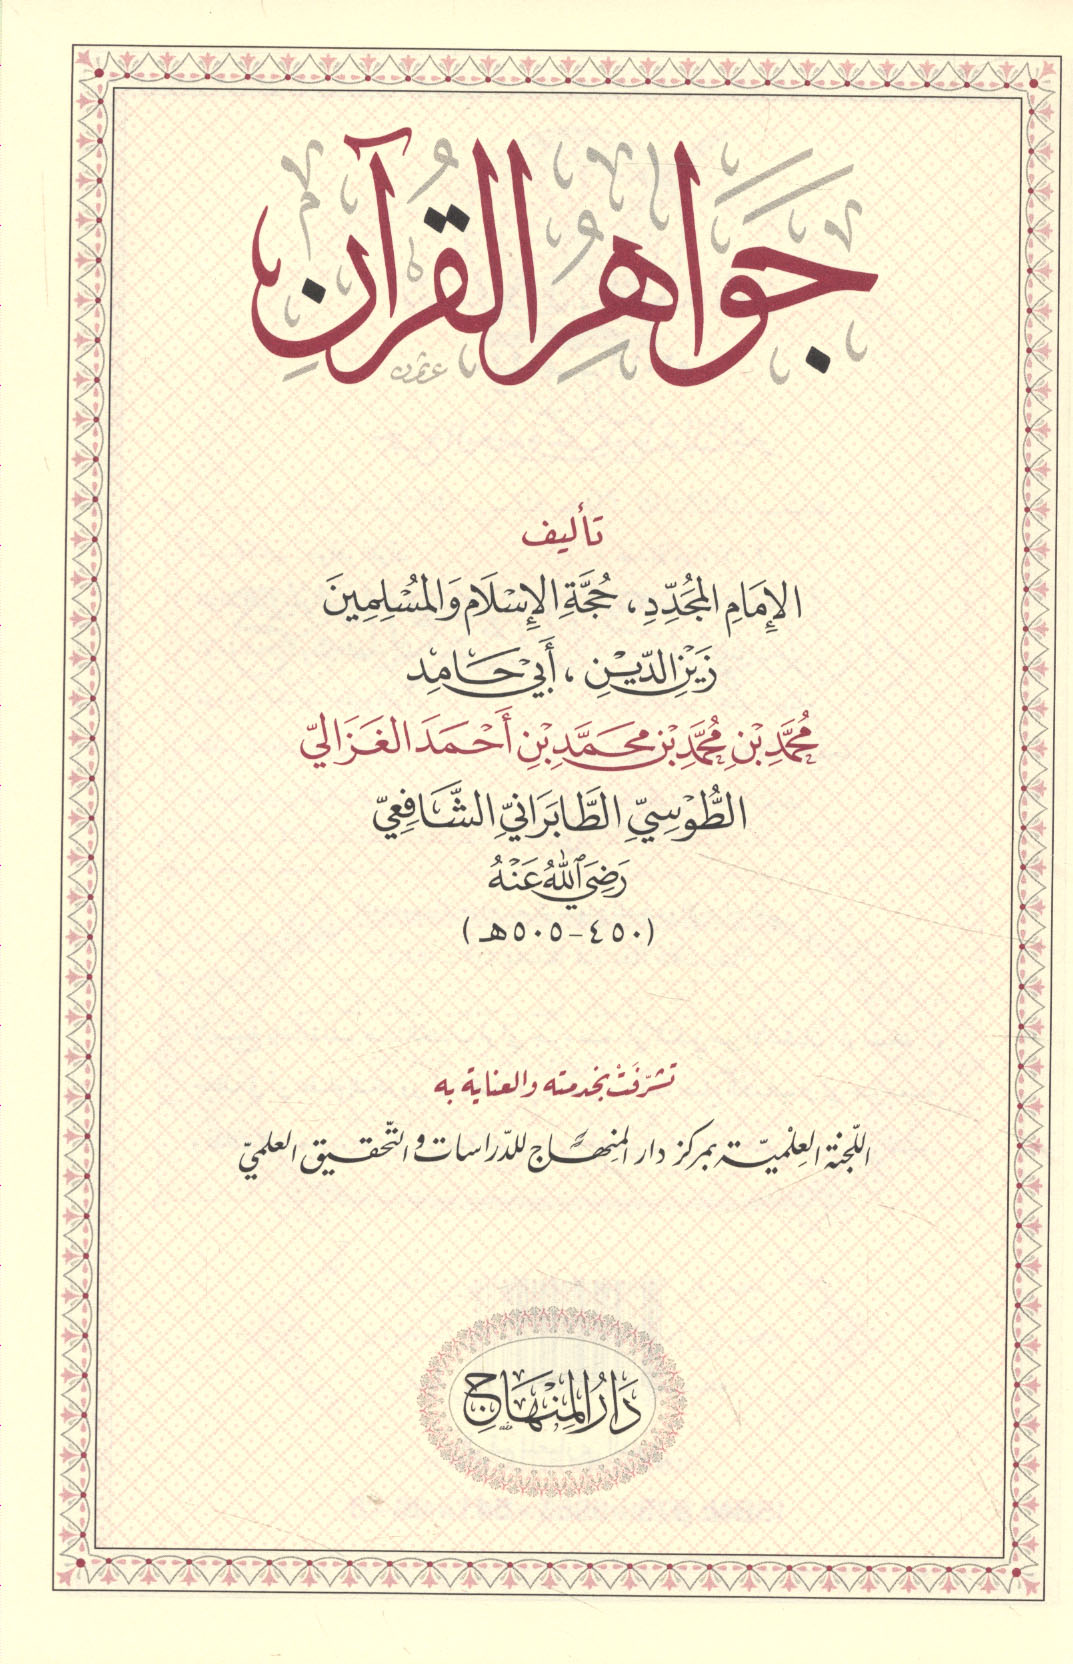 جَوَاهِرُ القُرْآنِ
عثمان
تأليف
الإِمَامِ المُجَدِّدِ ، حُجَّةِ الإِسْلَامِ وَالمُسْلِمِينَ
زَيْنِ الدِّيْنِ ، أَبِي حَامِدٍ
مُحَمَّدِ بْنِ مُحَمَّدِ بْنِ مُحَمَّدِ بْنِ أَحْمَدَ الغَزَالِيِّ
الطُّوْسِيِّ الطَّابَرَانِيِّ الشَّافِعِيِّ
رَضِيَ اللهُ عَنْهُ
(٤٥٠-٥٠٥هـ)
تشرّفَتْ بخدمته والعناية به
اللّجنة العِلْميّة بمركز دار المِنهَاج للدّراسات والتّحقيق العلميّ
دَارُ المِنْهَاجِ